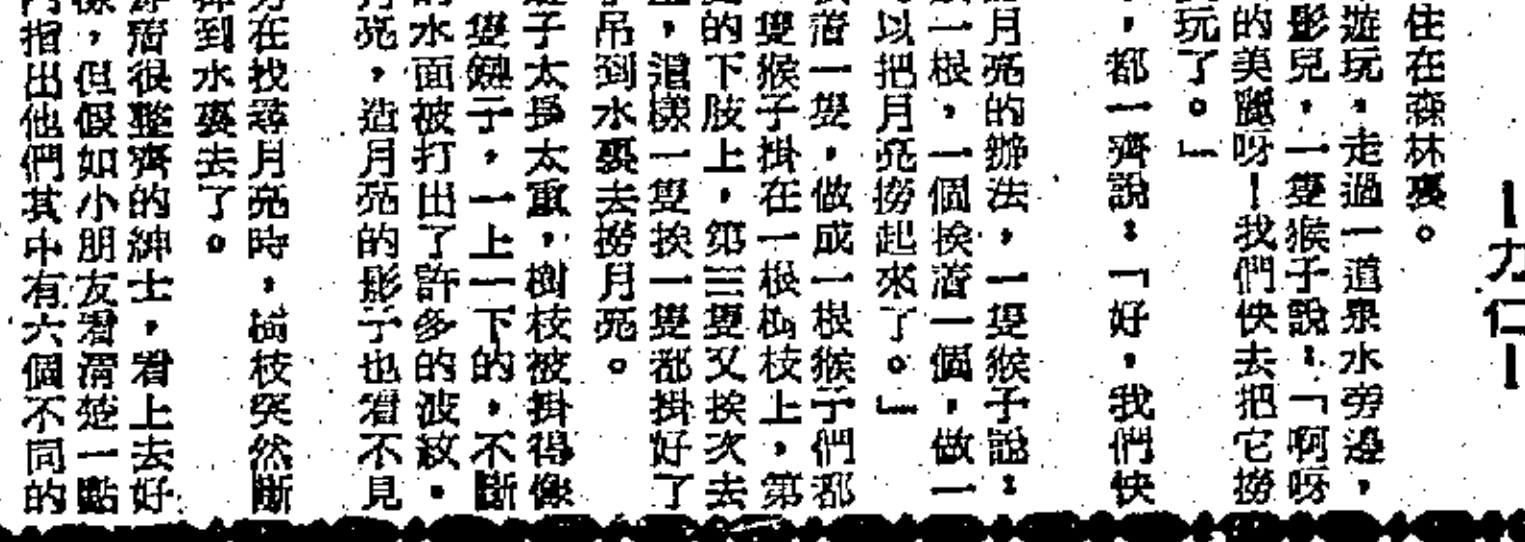 ー力仁ー
住在森林裏。
遊玩。走過一道泉水旁邊,
影兒,一隻猴子說:「啊呀
的美麗呀!我們快去把它撈
玩了。」
,都一齊說:「好,我們快
月亮的辦法,一隻猴子說:
一根,一個挨着一個,做一
以把月亮撈起來了。」
着一隻,做成一根猴子們都
隻猴子掛在一根樹枝上,第
的下肢上,第三隻又挨次去
,這樣一隻挨一隻都掛好了
吊到水裏去撈月亮。
子太多太重,樹枝被掛得像
隻鏈子,一上一下的,不斷
的水面被打出了許多的波紋。
亮,造月亮的影子也看不見
在找尋月亮時,樹枝突然斷
到水裏去了。
着很整齊的紳士,看上去好
樣,但假如小朋友看清楚一點
指出他們其中有六個不同的